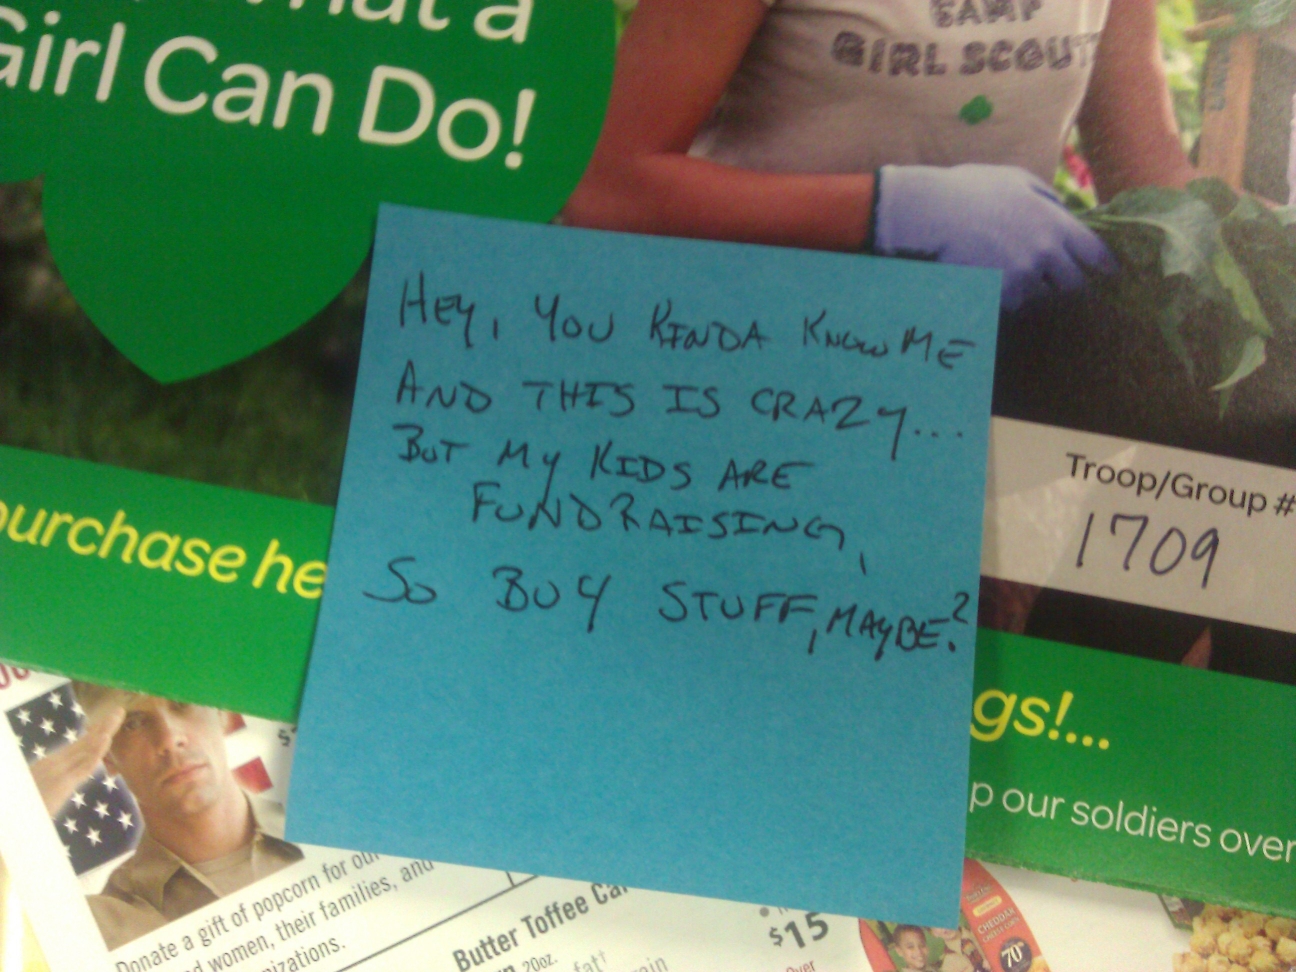 at a
Girl Can Do!
CAMP
GIRL SCOUT
HEY, YOU KINDA KNOW ME
AND THIS IS CRAZY...
BUT MY KIDS ARE
FUNDRAISING,
SO BUY STUFF, MAYBE?
Troop/Group #
1709
purchase he
gs!...
p our soldiers over
Donate a gift of popcorn for our
d women, their families, and
nizations.
Butter Toffee Ca
20oz.
fat†
$15
Over
CHEDDAR
70%